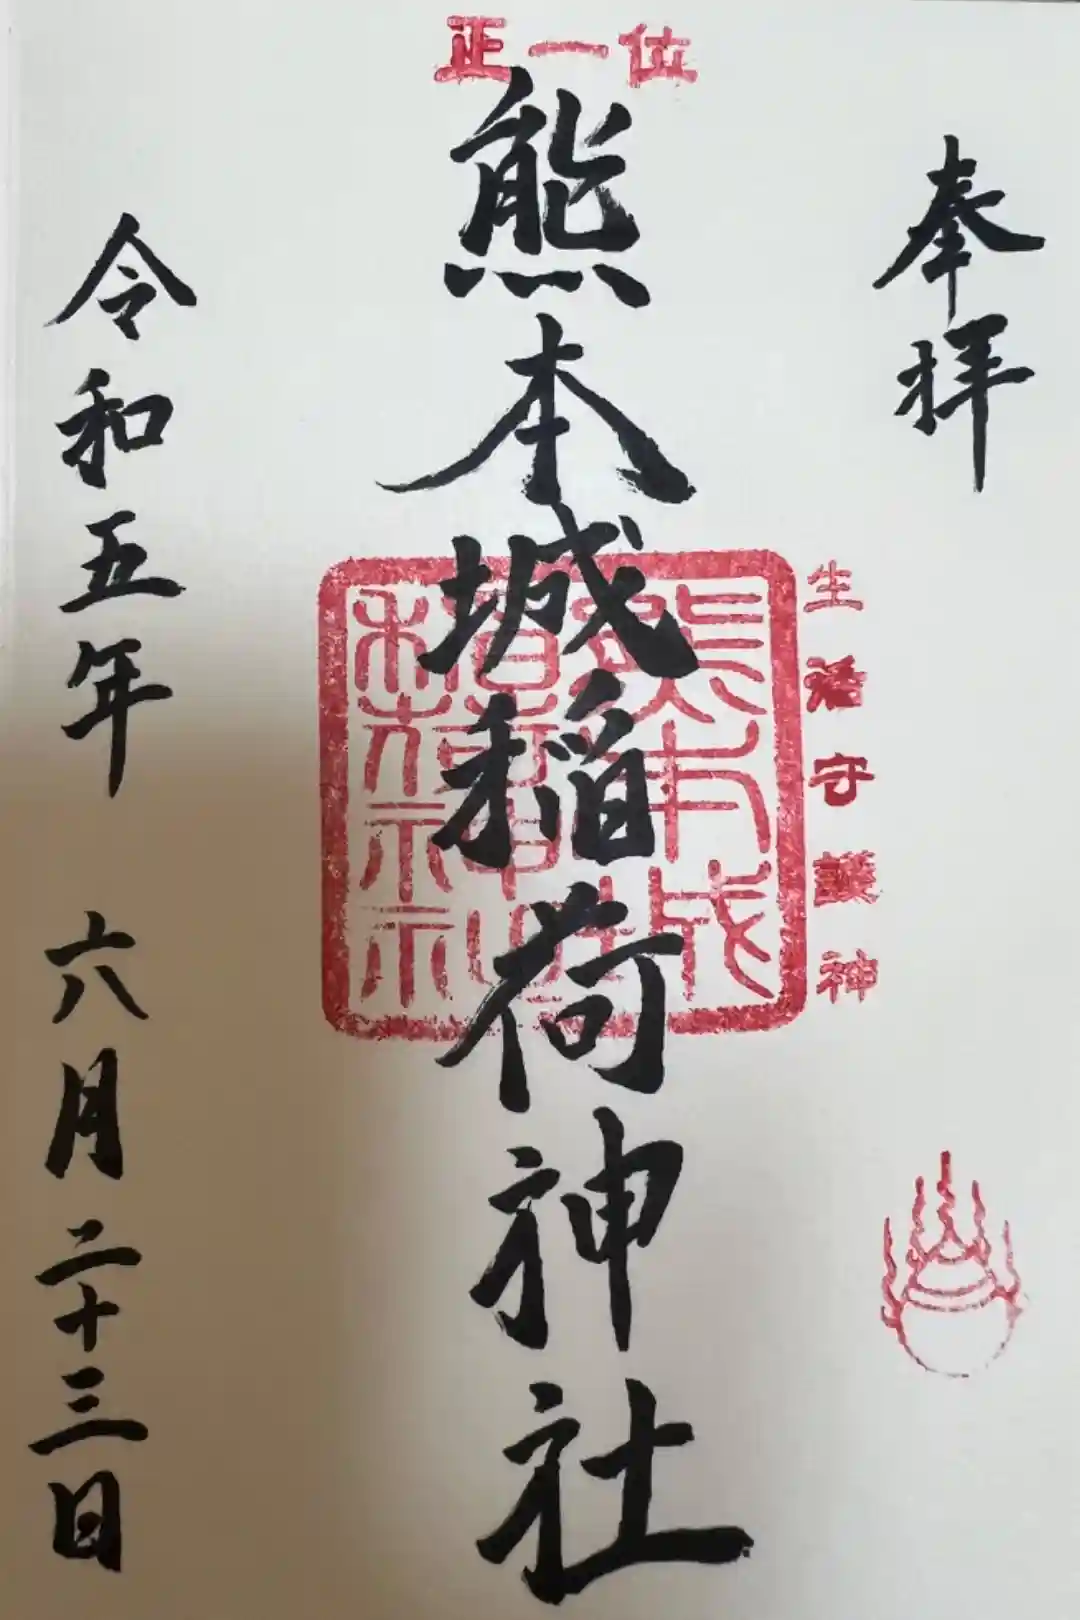 奉拝
生活守護神
正一位
熊本城稲荷神社
熊本城
稲荷神社
令和五年 六月二十三日